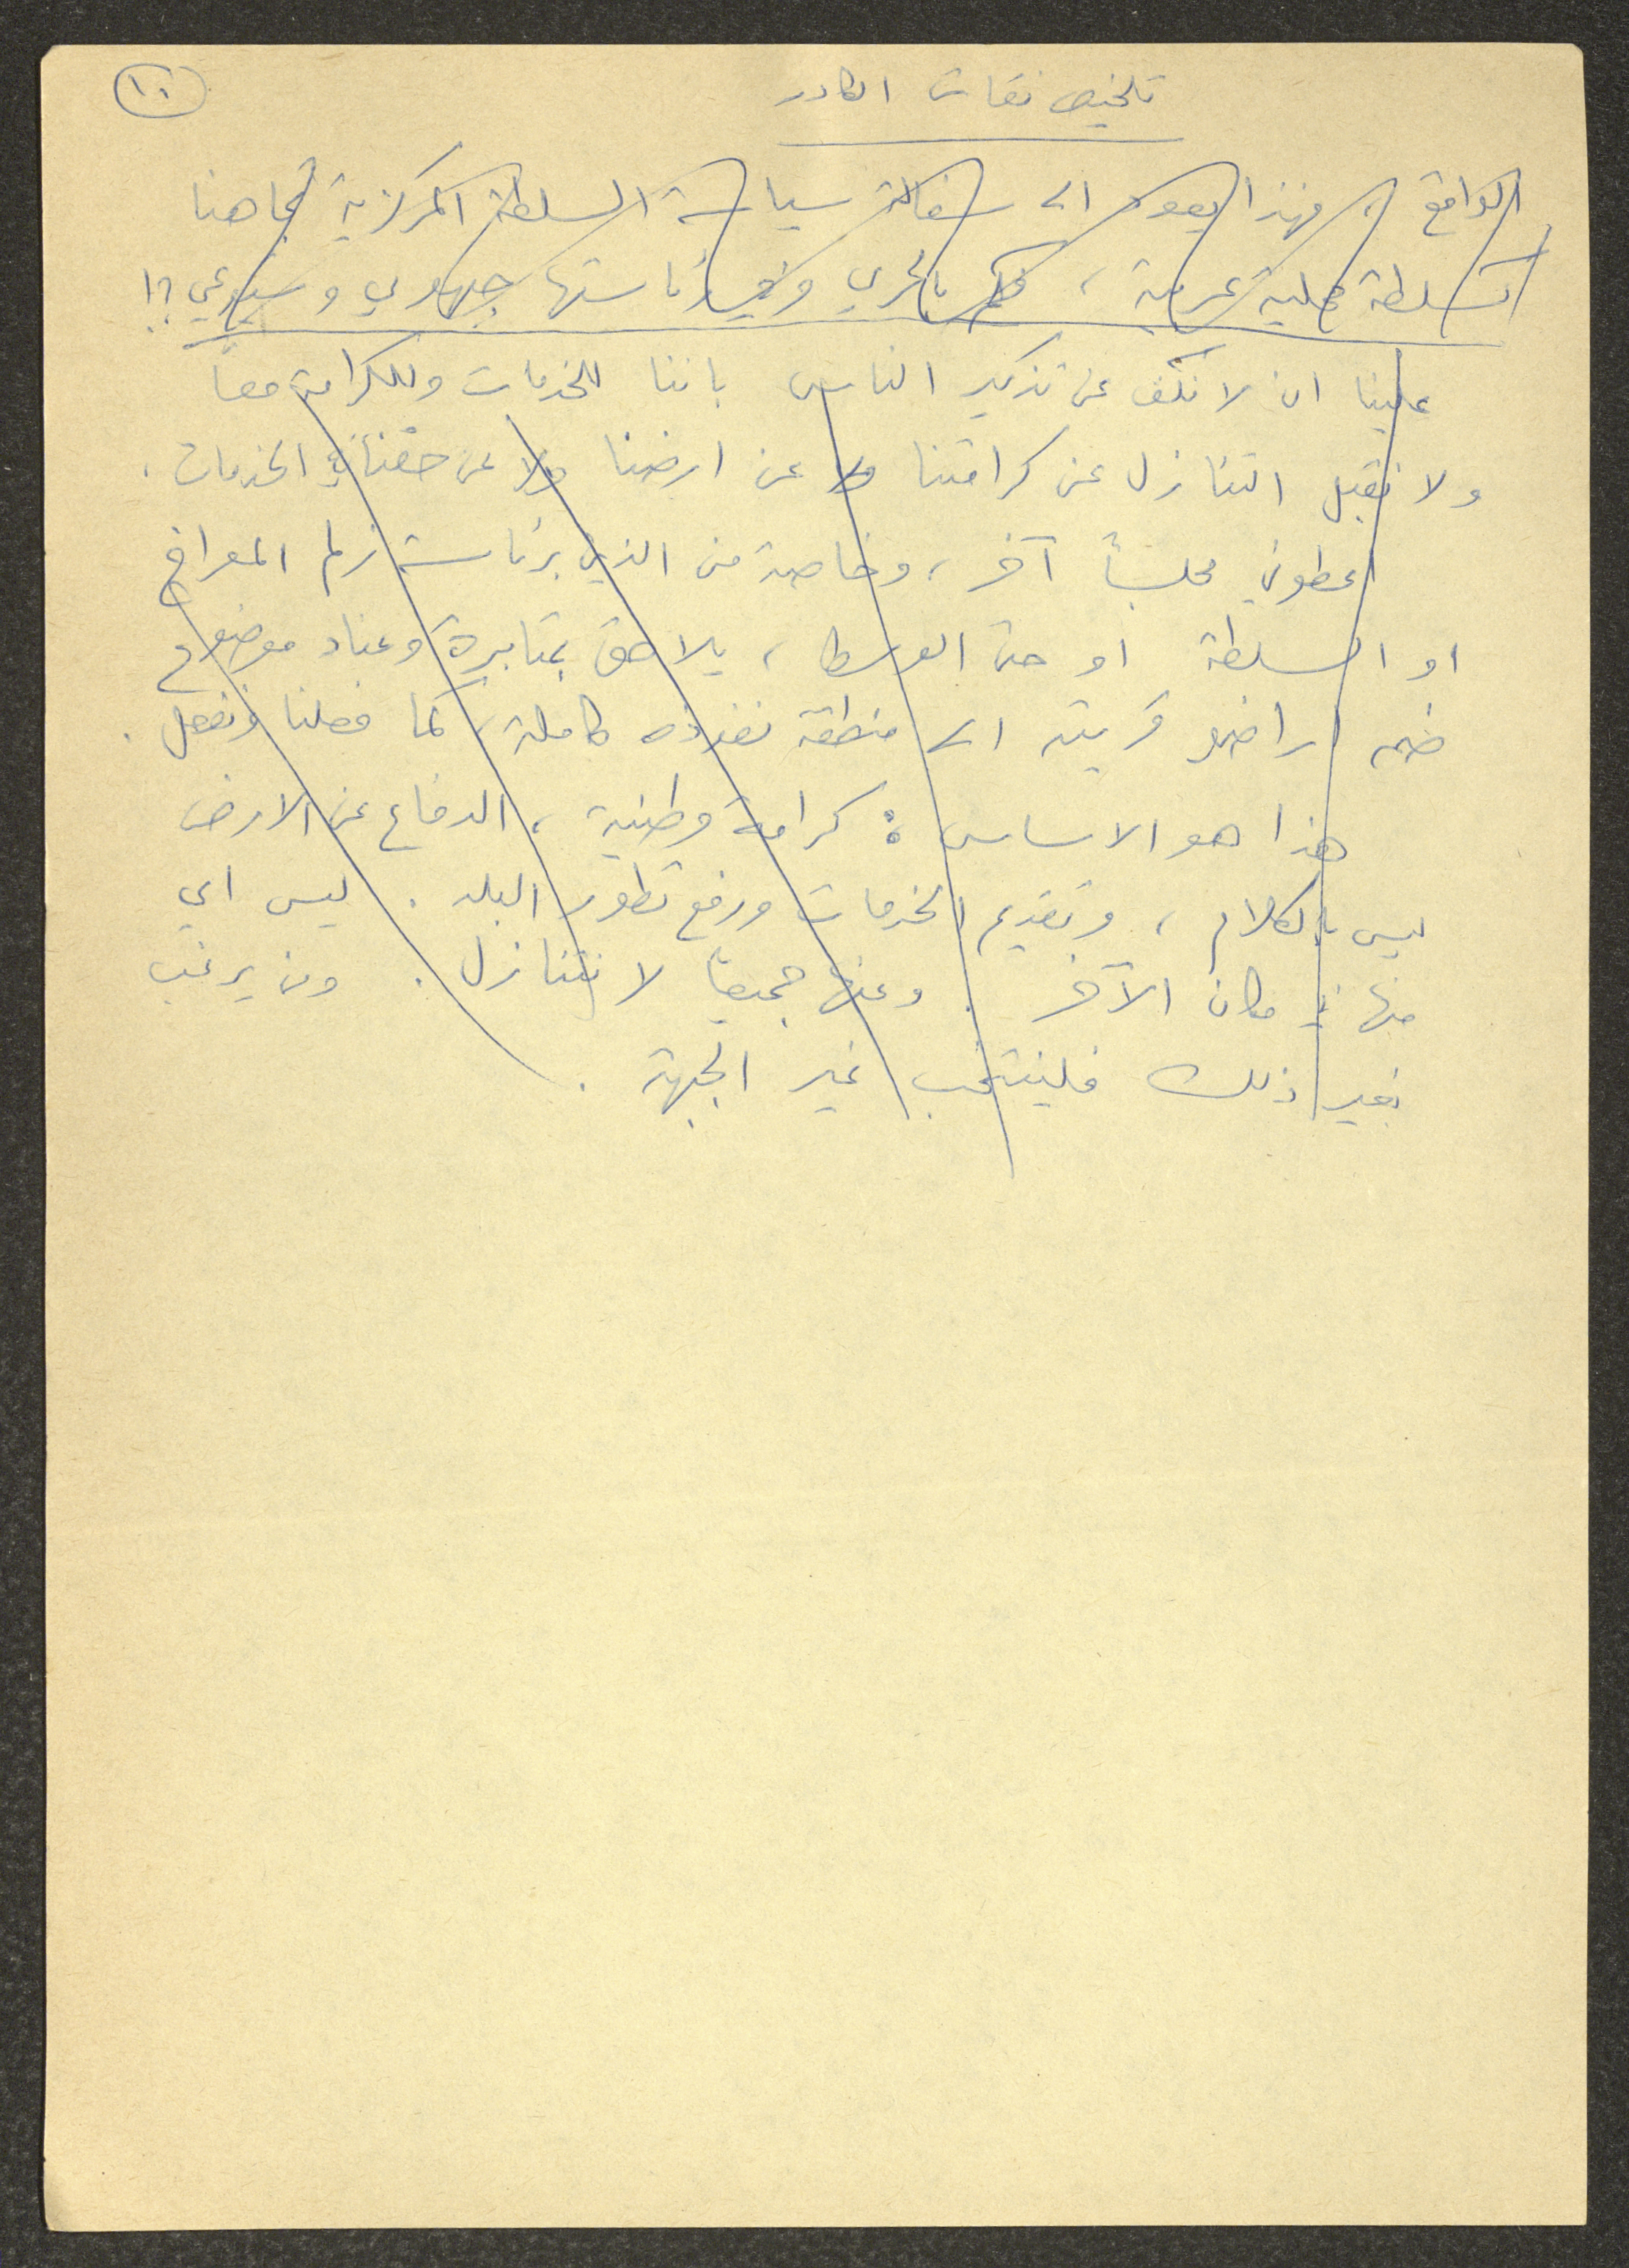 ١٠
تلخيص نقاش الكادر
الواقع، فهذا يعود الى سفالة سياسة السلطة المركزية تجاهنا
كسلطة محلية عربية، فكم بالحري وفي رئاستها جبهوي وشيوعي؟!
علينا ان لا نكف عن تذكير الناس باننا للخدمات وللكرامة معاً
ولا نقبل التنازل عن كرامتنا ولا عن ارضنا ولا عن حقنا في الخدمات.
اعطوني مجلساً آخر، وخاصة من الذين برئاسة زلم المعراخ
او السلطة او حتى الوسط، يلاحق بمثابرة وعناد موضوع
ضم اراضي قريته الى منطقة نفوذه كاملة، كما فعلنا ونفعل.
هذا هو الاساس: كرامة وطنية، الدفاع عن الارض
ليس بالكلام، وتقديم الخدمات ورفع تطور البلد. ليس اي
منها في مكان الآخر. وعنها جميعاً لا نتنازل. ومن يرغب
بغير ذلك فلينتخب غير الجبهة.